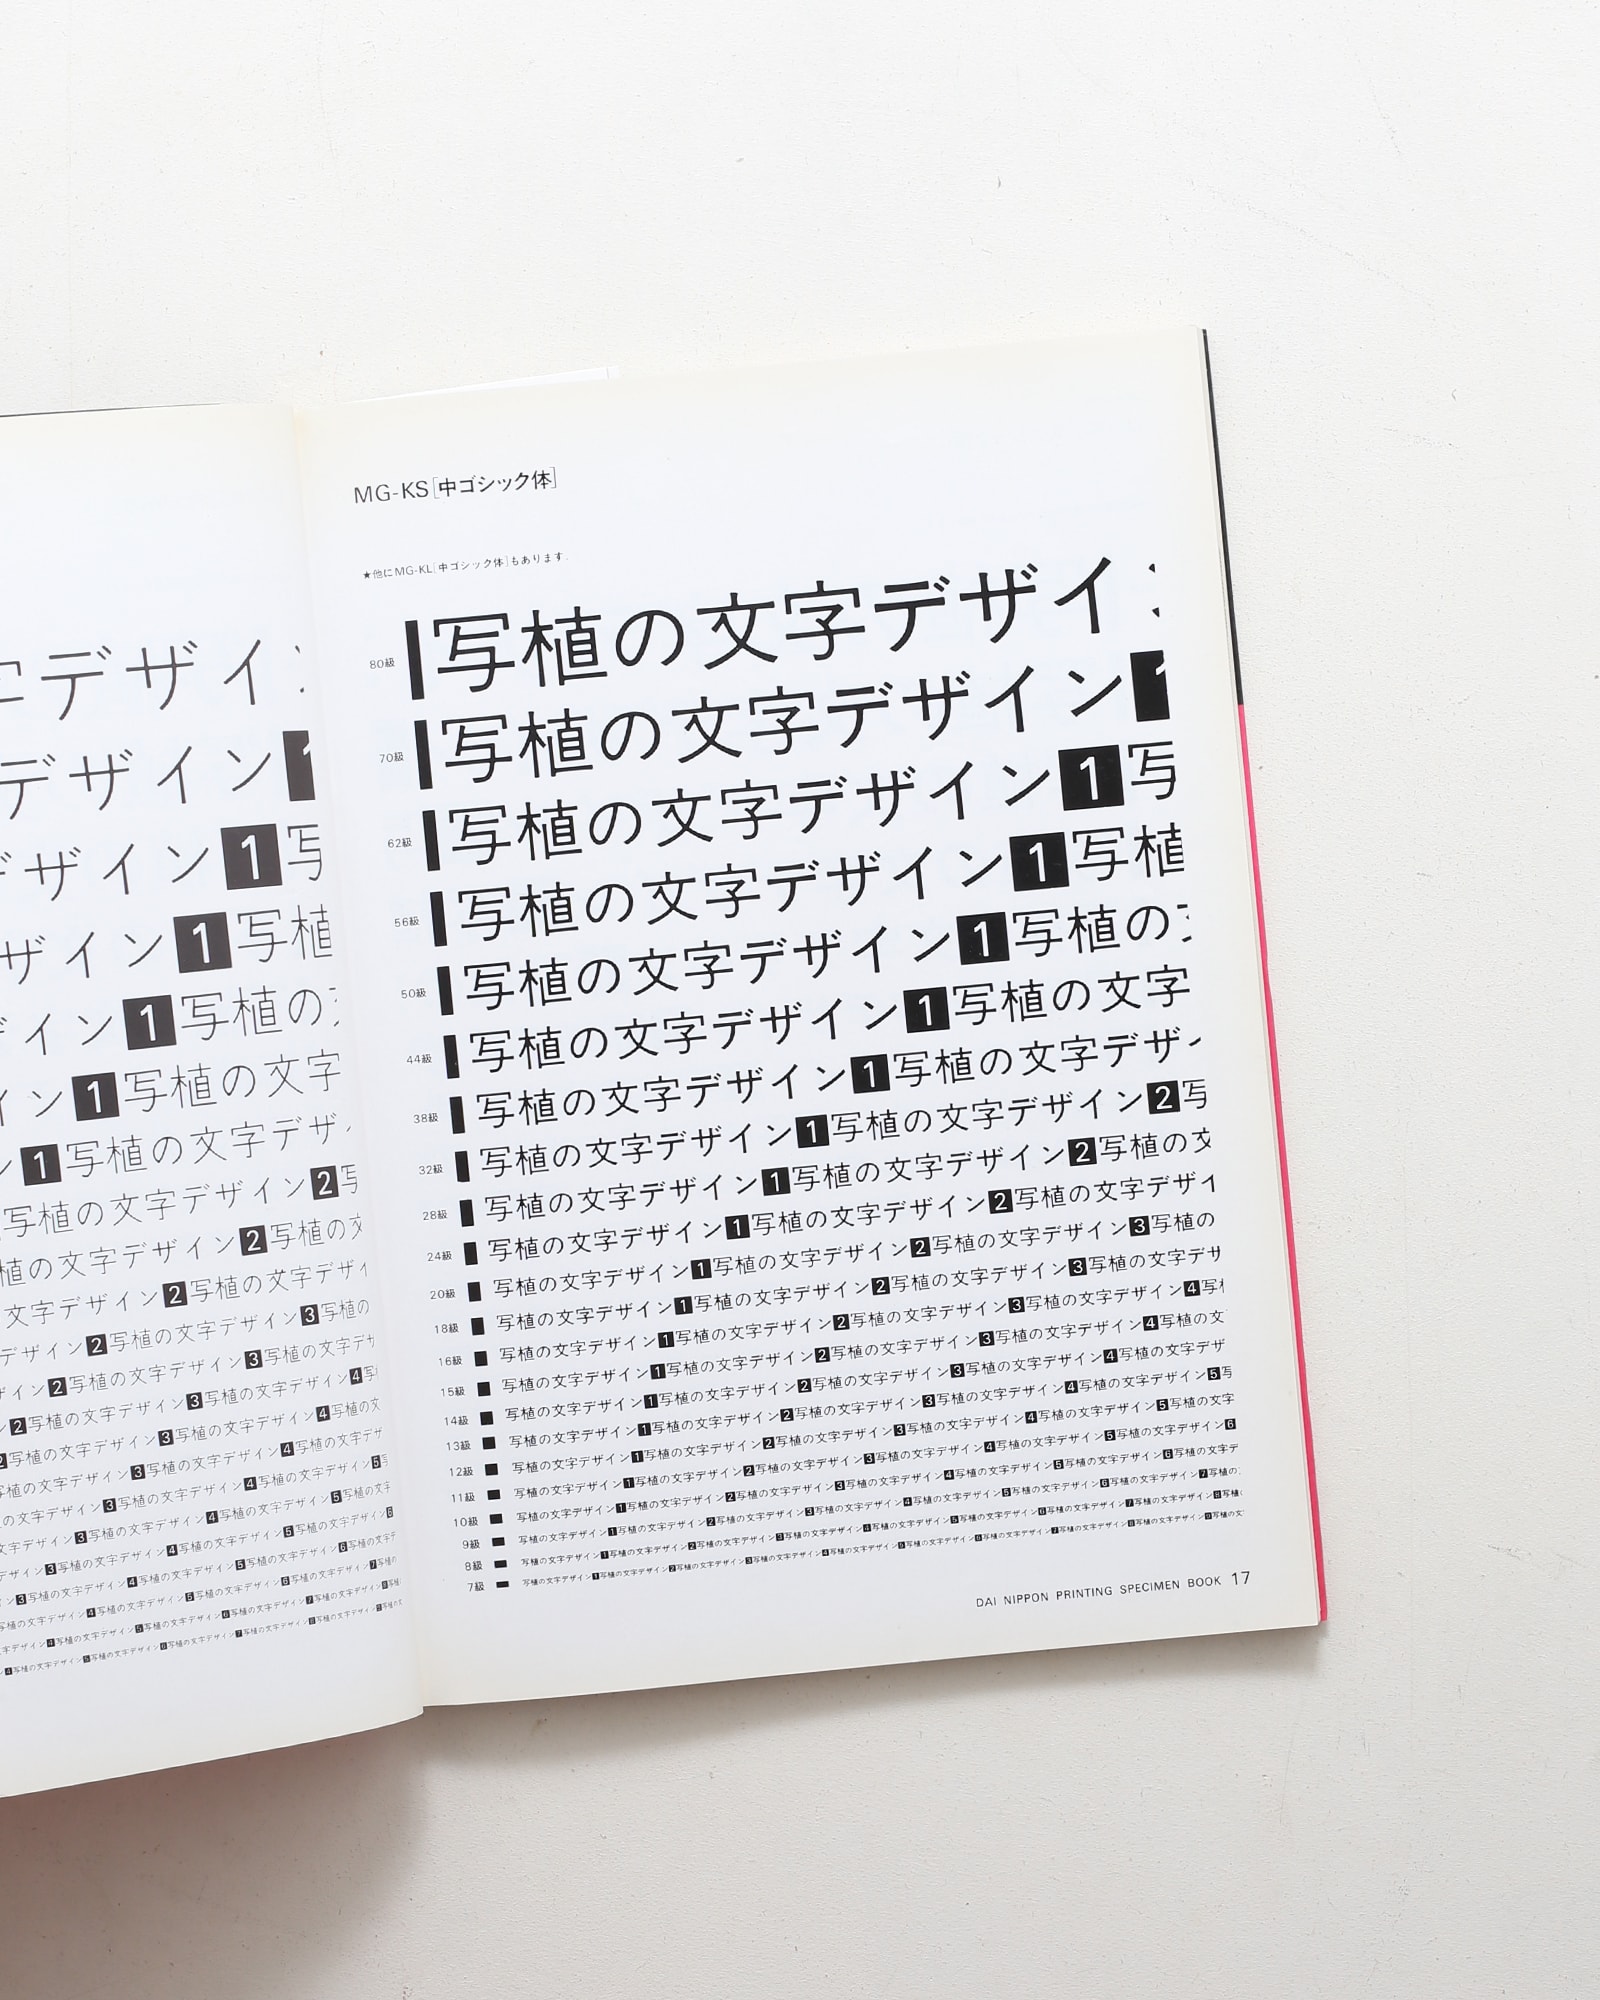 字デザイン
デザイン1
デザイン1写
ザイン1写植
イン1写植の
ン1写植の文字
1写植の文字デザ
写植の文字デザイン2写
植の文字デザイン2写植の文
文字デザイン2写植の文字デザイ
デザイン2写植の文字デザイン3写植の
イン2写植の文字デザイン3写植の文字デザ
2写植の文字デザイン3写植の文字デザイン4写
2写植の文字デザイン3写植の文字デザイン4写植の文
MG-KS[中ゴシック体]
★他にMG-KL[中ゴシック体]もあります.
80級 写植の文字デザイ
70級 写植の文字デザイン1
62級 写植の文字デザイン1写
56級 写植の文字デザイン1写植
50級 写植の文字デザイン1写植の
44級 写植の文字デザイン1写植の文字
38級 写植の文字デザイン1写植の文字デザ
32級 写植の文字デザイン1写植の文字デザイン2写
28級 写植の文字デザイン1写植の文字デザイン2写植の文
24級 写植の文字デザイン1写植の文字デザイン2写植の文字デザイ
20級 写植の文字デザイン1写植の文字デザイン2写植の文字デザイン3写植の
18級 写植の文字デザイン1写植の文字デザイン2写植の文字デザイン3写植の文字デザ
16級 写植の文字デザイン1写植の文字デザイン2写植の文字デザイン3写植の文字デザイン4写
15級 写植の文字デザイン1写植の文字デザイン2写植の文字デザイン3写植の文字デザイン4写植の文
14級 写植の文字デザイン1写植の文字デザイン2写植の文字デザイン3写植の文字デザイン4写植の文字デザ
13級 写植の文字デザイン1写植の文字デザイン2写植の文字デザイン3写植の文字デザイン4写植の文字デザイン5写
12級 写植の文字デザイン1写植の文字デザイン2写植の文字デザイン3写植の文字デザイン4写植の文字デザイン5写植の文字
11級 写植の文字デザイン1写植の文字デザイン2写植の文字デザイン3写植の文字デザイン4写植の文字デザイン5写植の文字デザイン6
10級 写植の文字デザイン1写植の文字デザイン2写植の文字デザイン3写植の文字デザイン4写植の文字デザイン5写植の文字デザイン6写植の文字デ
9級 写植の文字デザイン1写植の文字デザイン2写植の文字デザイン3写植の文字デザイン4写植の文字デザイン5写植の文字デザイン6写植の文字デザイン7写植の
8級 写植の文字デザイン1写植の文字デザイン2写植の文字デザイン3写植の文字デザイン4写植の文字デザイン5写植の文字デザイン6写植の文字デザイン7写植の文字デザイン8写植
7級 写植の文字デザイン1写植の文字デザイン2写植の文字デザイン3写植の文字デザイン4写植の文字デザイン5写植の文字デザイン6写植の文字デザイン7写植の文字デザイン8写植の文字デザイン9写植の文
DAI NIPPON PRINTING SPECIMEN BOOK 17